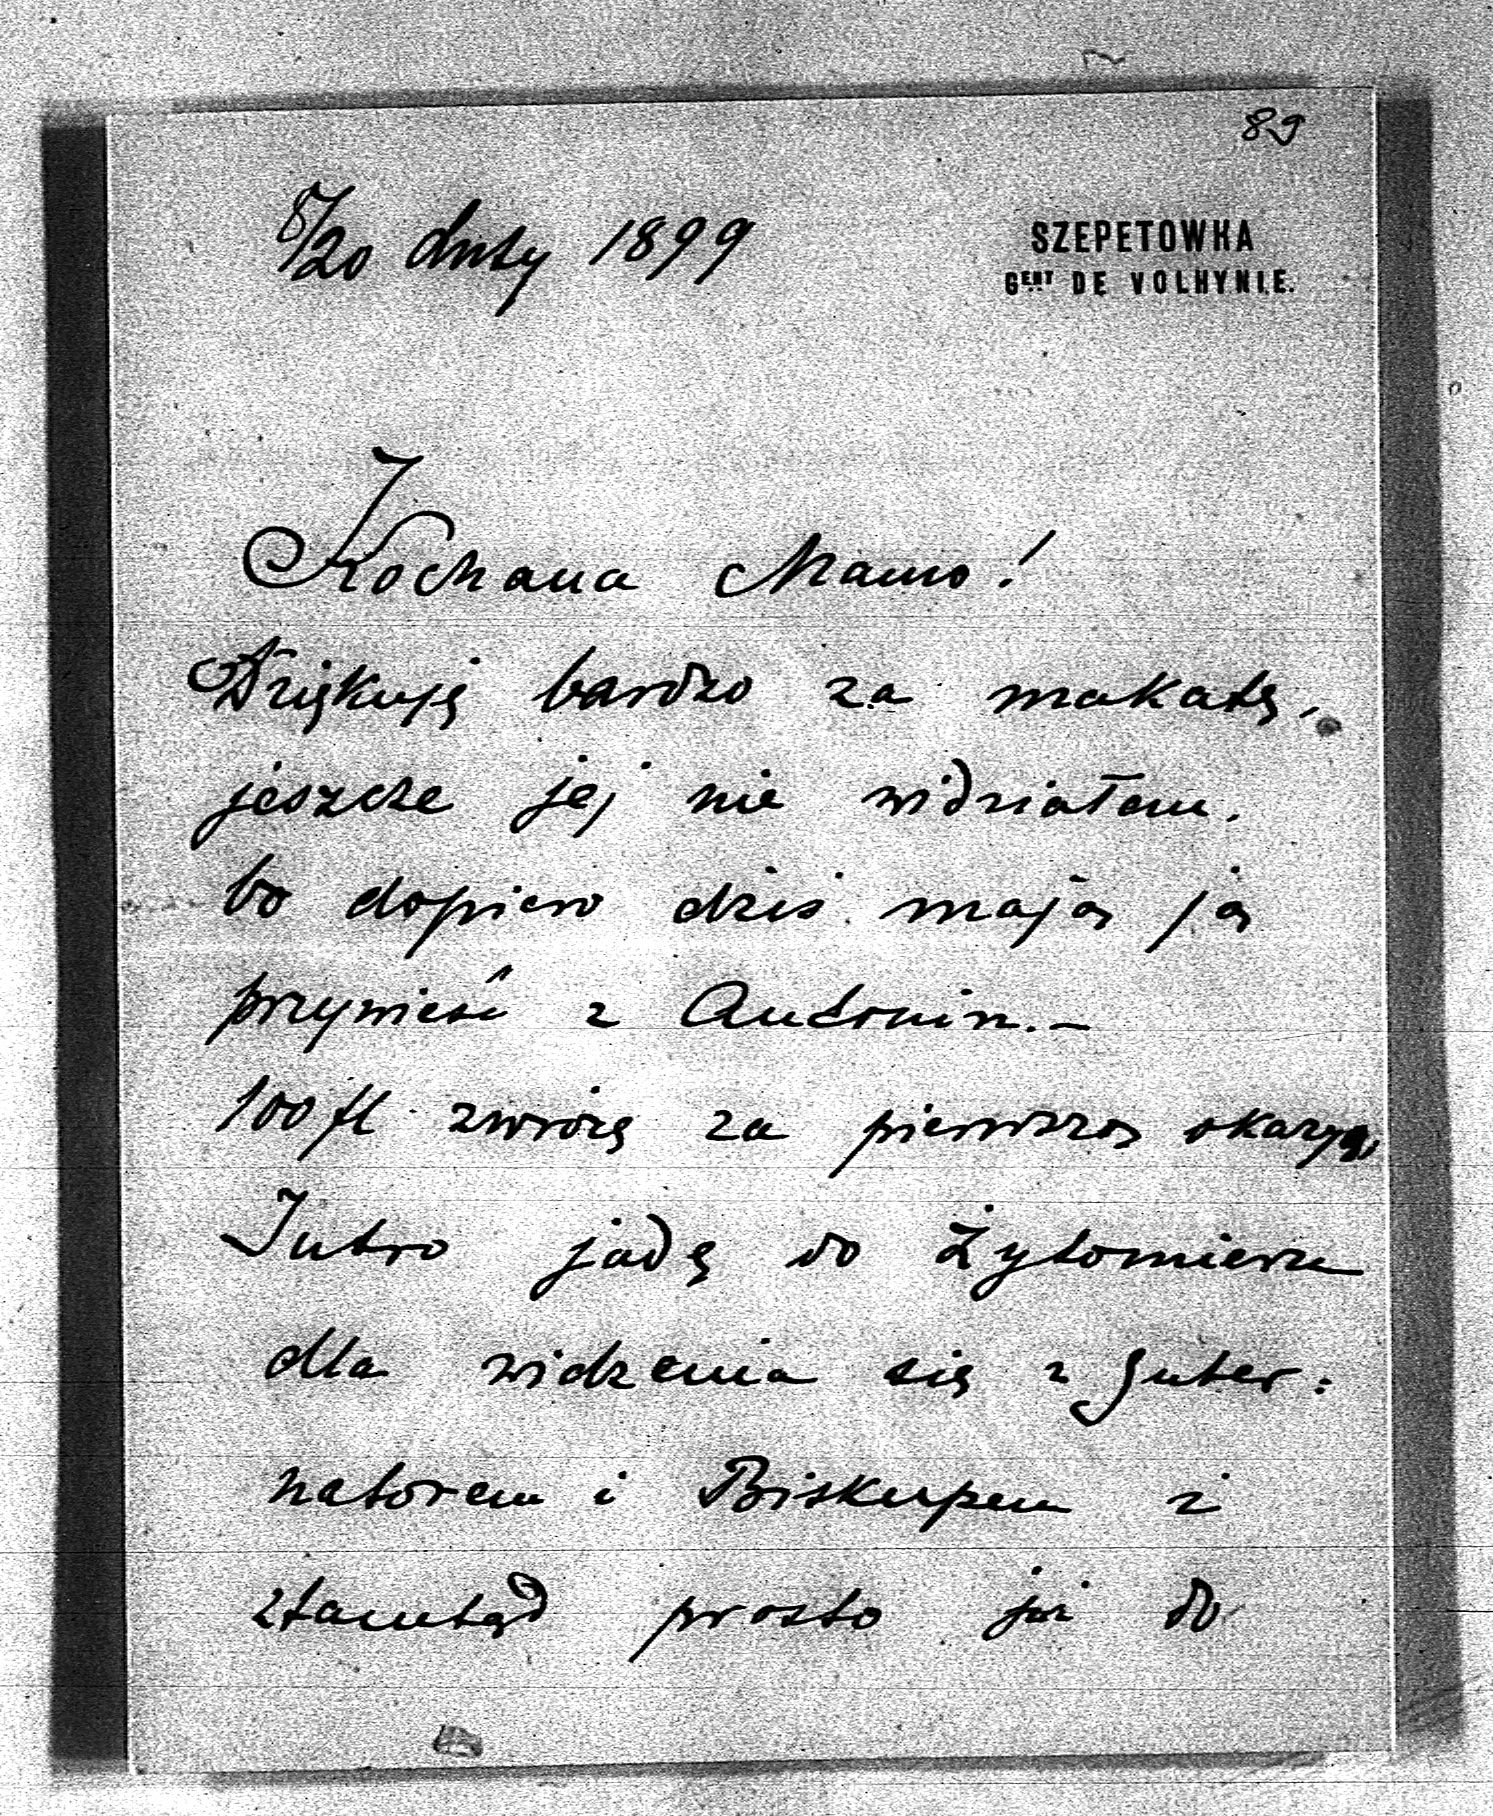 89
8/20 luty 1899
SZEPETOWKA
GERT DE VOLHYNIE.
Kochana Mamo!
Dziękuję bardzo za makatę,
jeszcze jej nie widziałem.
bo dopiero dziś mają ją
przywieść z Antonin.—
100 fl zwrócę za pierwszą okazyą,
Jutro jadę do Żytomierza
dla widzenia się z Guber:
natorem i Biskupem i
ztamtąd prosto już do